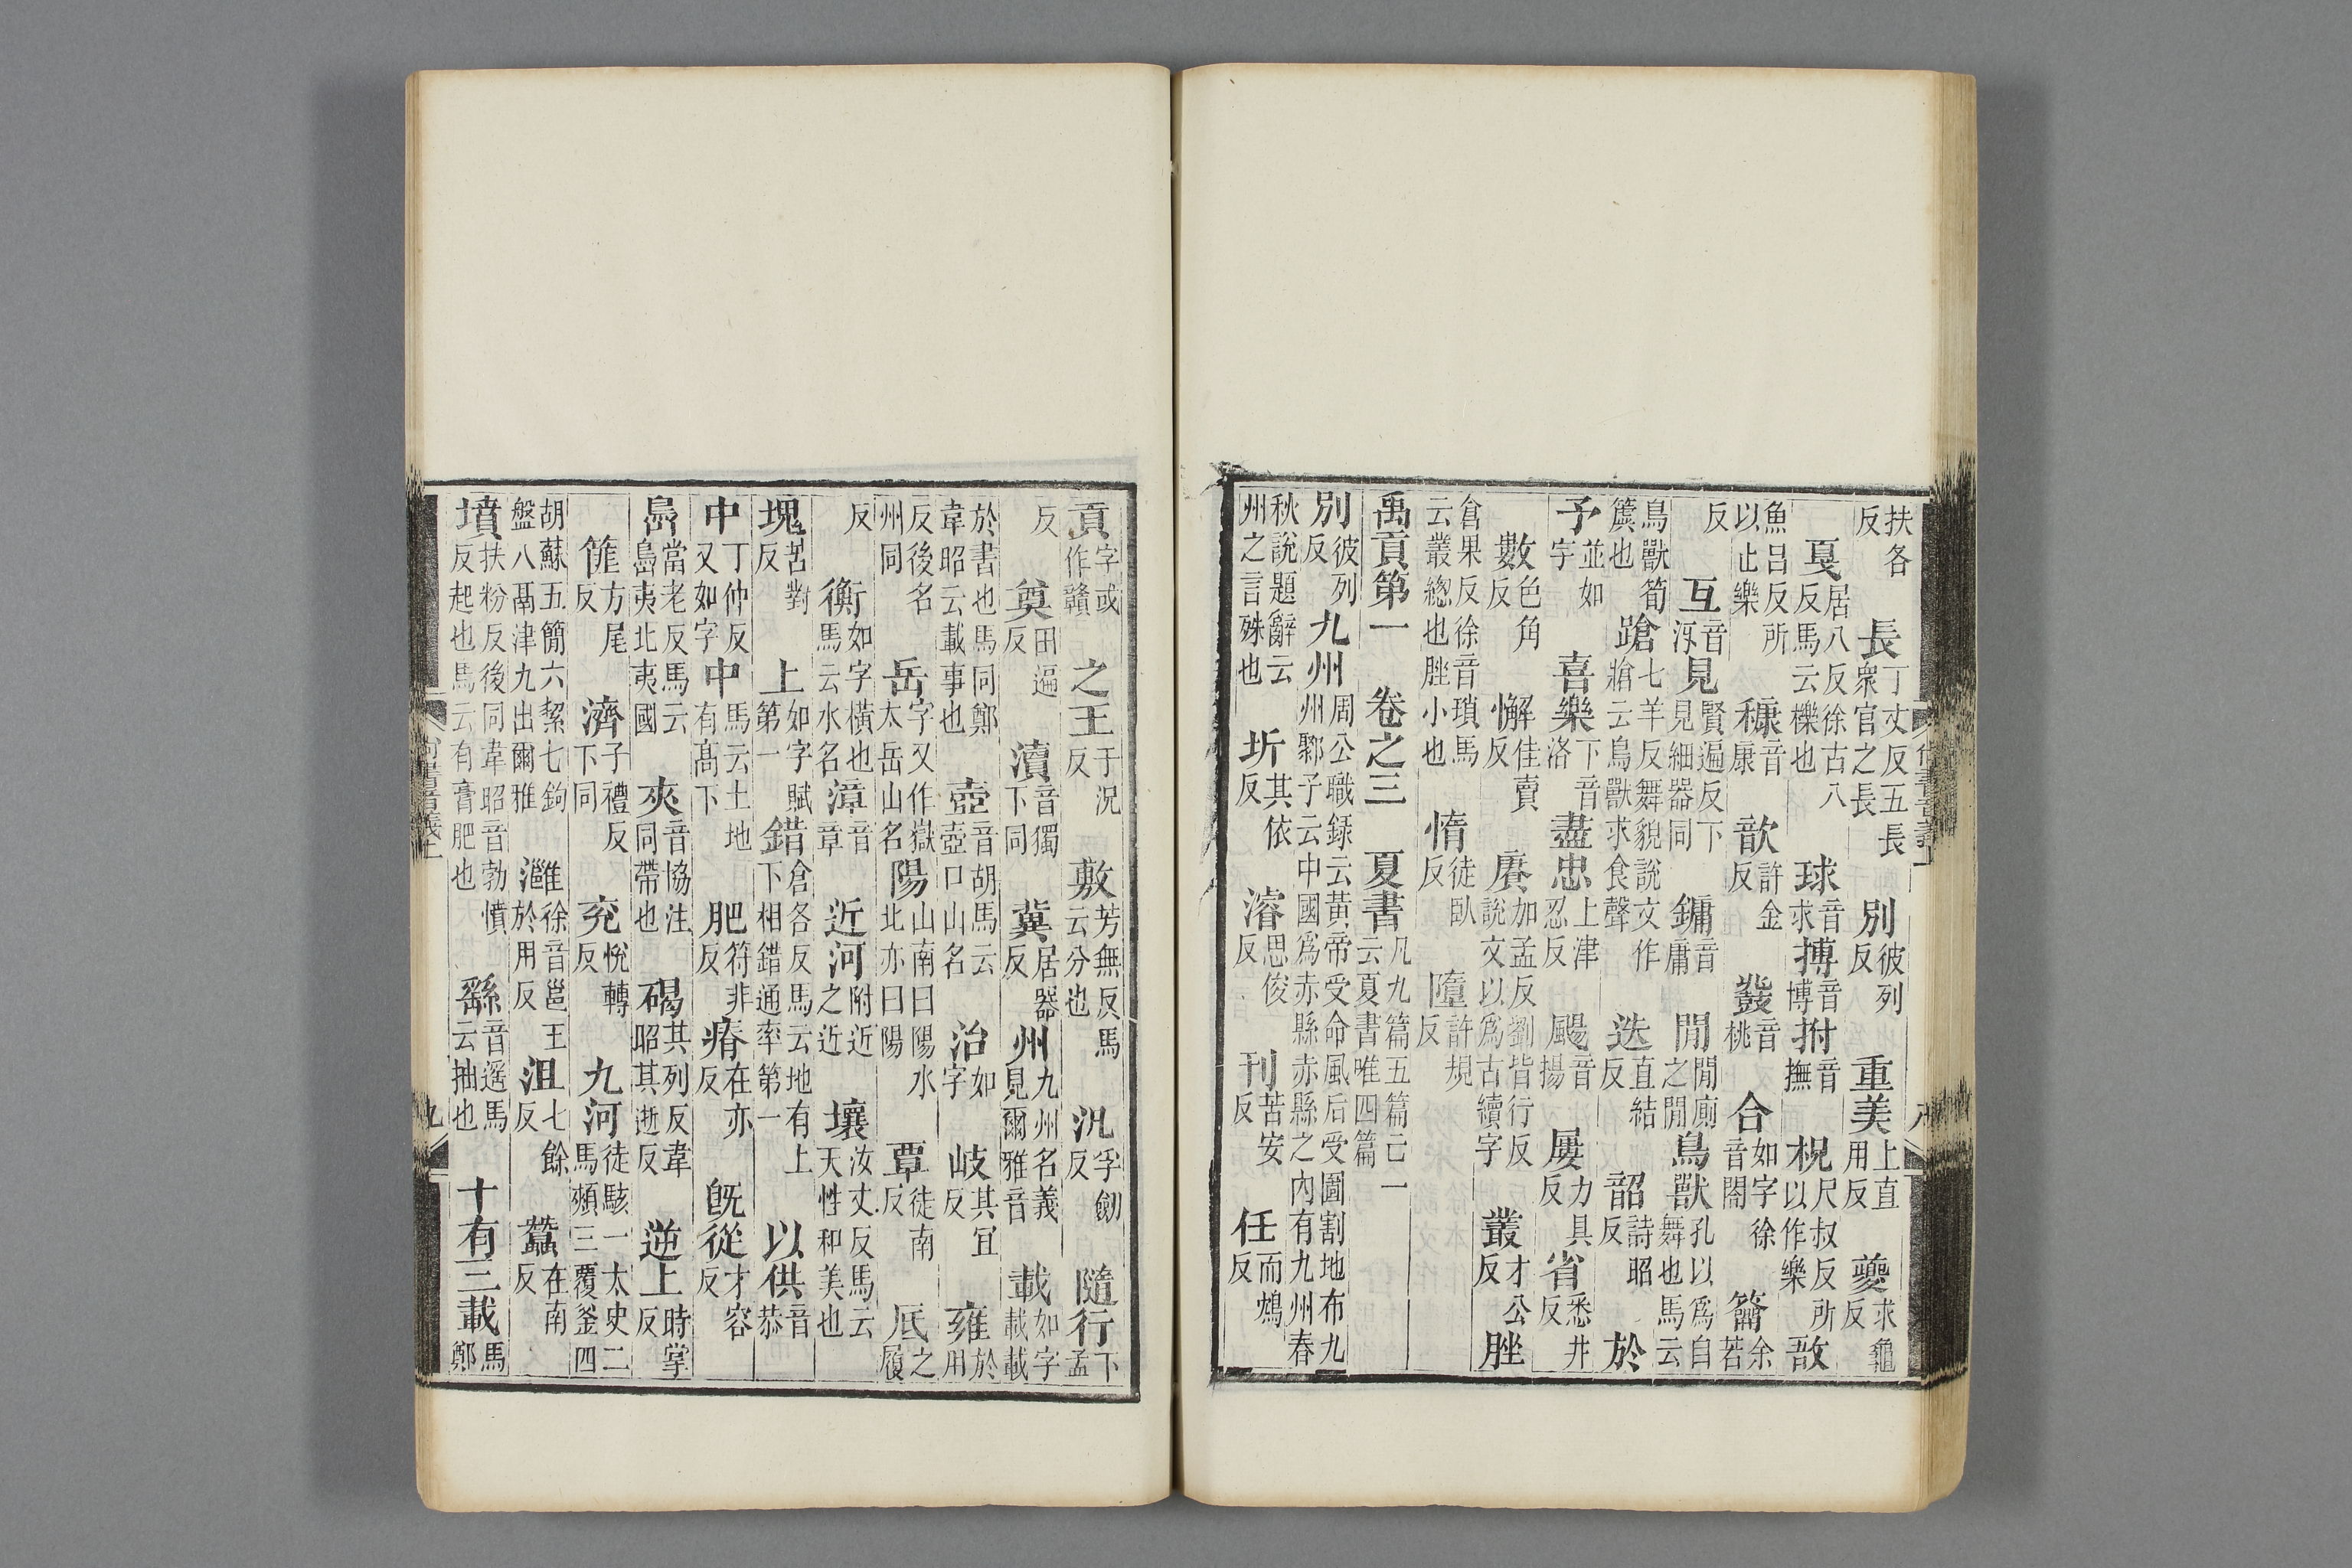 扶各反 長丁丈反五長衆官之長 別彼列反 重美上直用反 夔求龜反
戛居八反徐古八反馬云櫟也 球音求 搏音博 拊音撫 柷尺叔反所以作樂 敔
魚呂反所以止樂 穅音康 歆許金反 鼗音桃 合如字徐音閤 籥余若
反 互音沍 見賢遍反下見細器同 鏞音庸 閒閒廁之閒 鳥獸孔以爲自舞也馬云
鳥獸筍簴也 蹌七羊反舞貌說文作牄云鳥獸求食聲 迭直結反 韶詩昭反 於
予並如字 喜樂下音洛 盡忠上津忍反 颺音揚 屢力具反 省悉井反
數色角反 懈佳賣反 賡加孟反劉皆行反說文以爲古續字 叢才公反 脞
倉果反徐音瑣馬云叢總也脞小也 惰徒臥反 墮許規反
禹貢第一 卷之三 夏書凡九篇五篇亡一云夏書唯四篇
別彼列反 九州周公職錄云黃帝受命風后受圖割地布九州鄹子云中國爲赤縣赤縣之內有九州春
秋說題辭云州之言殊也 圻其依反 濬思俊反 刊苦安反 任而鴆反
貢字或作贛 之王于況反 敷芳無反馬云分也 汎孚劒反 隨行下孟
反 奠田遍反 瀆音獨下同 冀居器反 州九州名義見爾雅音 載如字載載
於書也馬同鄭韋昭云載事也 壺音胡馬云壺口山名 治如字 岐其宜反 雍於用
反後名州同 岳字又作嶽太岳山名 陽山南曰陽水北亦曰陽 覃徒南反 厎之履
反 衡如字橫也馬云水名 漳音章 近河附近之近 壤汝丈反馬云天性和美也
塊苦對反 上如字賦第一 錯倉各反馬云地有上下相錯通率第一 以供音恭
中丁仲反又如字 中馬云土地有高下 肥符非反 瘠在亦反 旣從才容反
島當老反馬云島夷北夷國 夾音協注同帶也 碣其列反韋昭其逝反 逆上時掌反
篚方尾反 濟子禮反下同 兖悅轉反 九河徒駭一太史二馬頰三覆釜四
胡蘇五簡六絜七鉤盤八鬲津九出爾雅 灉徐音邕王於用反 沮七餘反 蠶在南反
墳扶粉反後同韋昭音勃憤反起也馬云有膏肥也 繇音遥馬云抽也 十有三載馬鄭